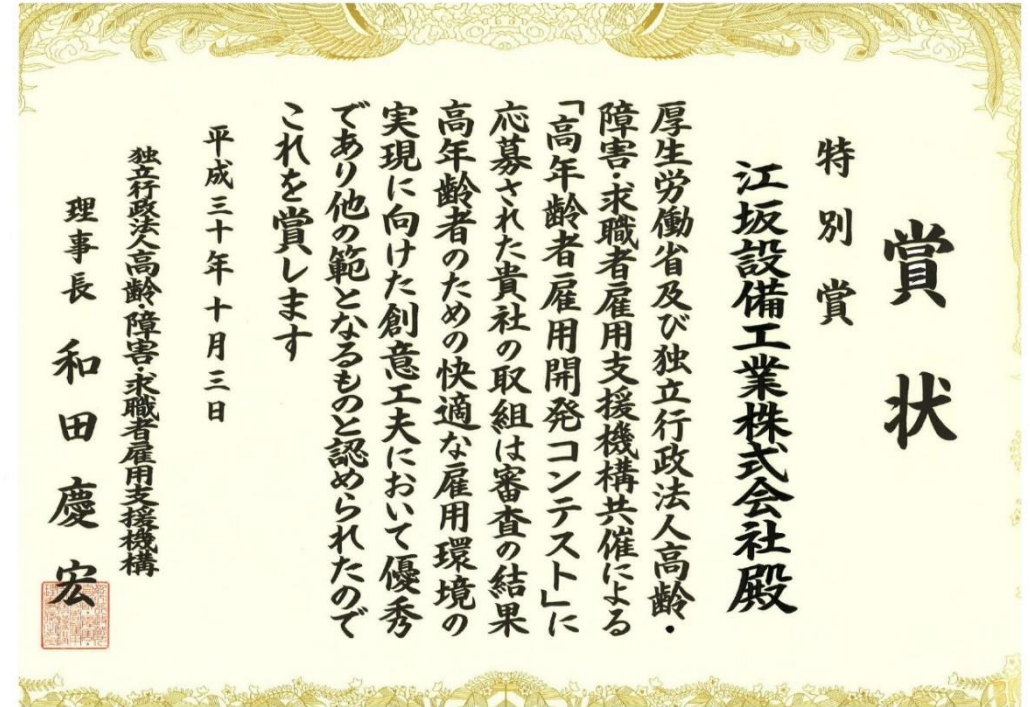 賞状
特別賞
江坂設備工業株式会社殿
厚生労働省及び独立行政法人高齢・
障害・求職者雇用支援機構共催による
「高年齢者雇用開発コンテスト」に
応募された貴社の取組は審査の結果
高年齢者のための快適な雇用環境の
実現に向けた創意工夫において優秀
であり他の範となるものと認められたので
これを賞します
平成三十年十月三日
独立行政法人高齢・障害・求職者雇用支援機構
理事長 和田慶宏